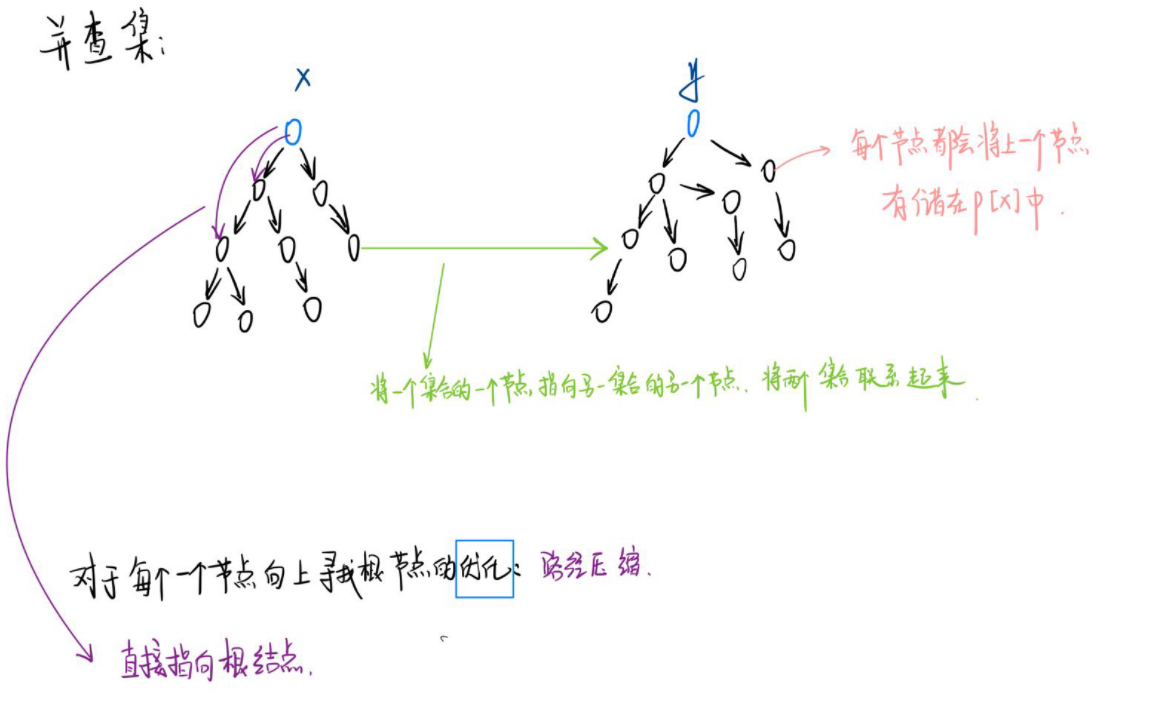 并查集:
x
y
每个节点都会将上一个节点
存储在p[x]中.
将一个集合的一个节点,指向另一集合的另一个节点.将两个集合联系起来.
对于每个一个节点向上寻找根节点的优化:路径压缩.
直接指向根结点.